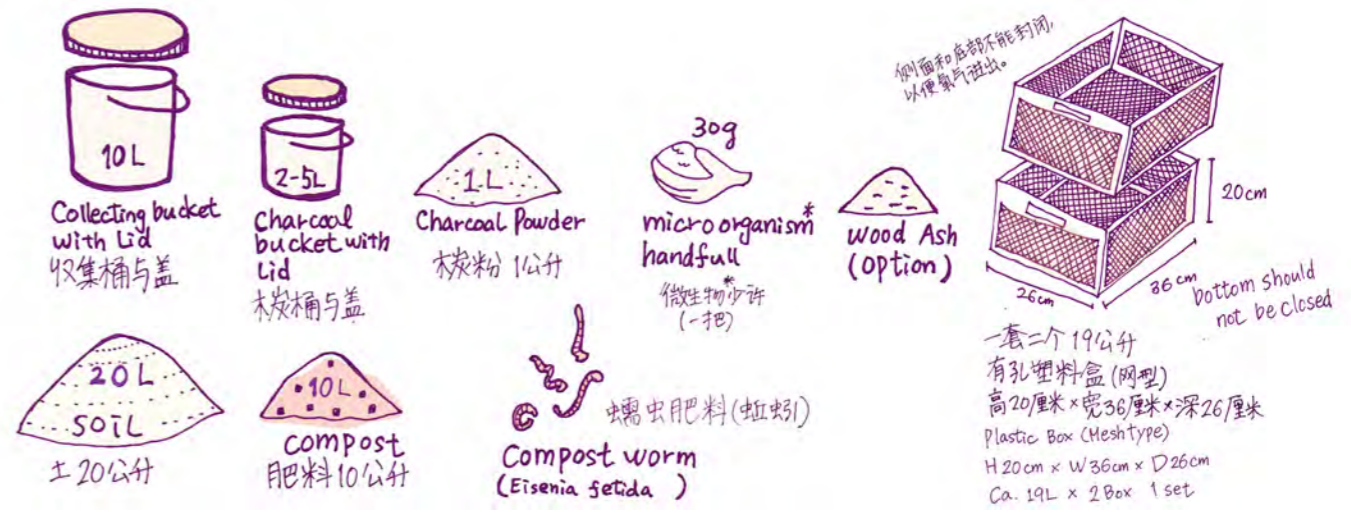 10L
Collecting bucket
with Lid
收集桶与盖
2-5L
Charcoal
bucket with
Lid
木炭桶与盖
1L
Charcoal Powder
木炭粉 1公升
30g
microorganism*
handfull
微生物*少许
(一把)
wood Ash
(option)
侧面和底部不能封闭,
以便氧气进出。
20cm
36cm
26cm
bottom should
not be closed
一套二个 19公升
有孔塑料盒(网型)
高20厘米×宽36厘米×深26厘米
Plastic Box (Mesh type)
H 20cm × W 36cm × D 26cm
Ca. 19L × 2 Box 1 set
20L
SOiL
土 20公升
10L
compost
肥料10公升
蠕虫肥料(蚯蚓)
Compost worm
(Eisenia fetida )